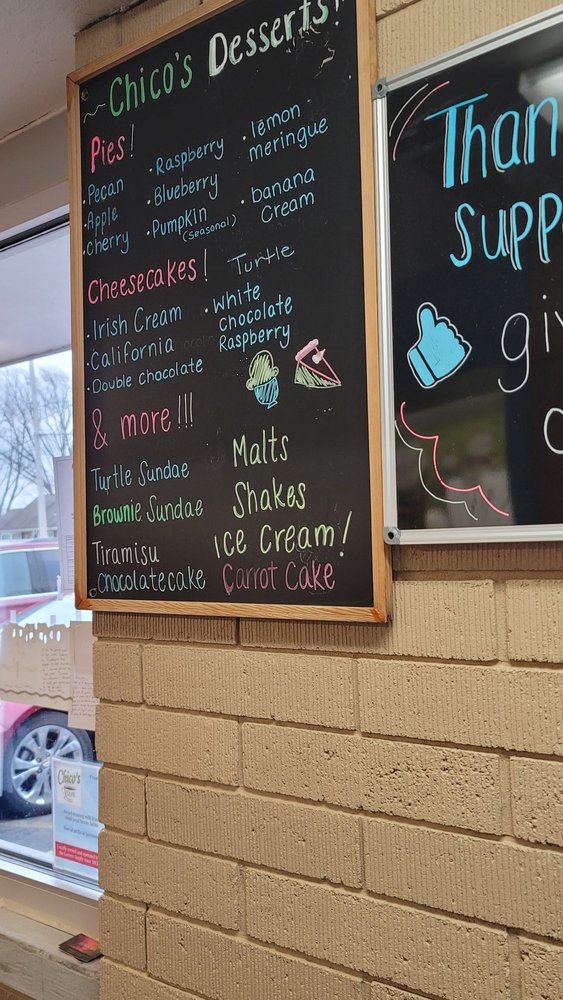 Chico's Desserts!
Pies!
• Pecan
• Apple
• cherry
• Raspberry
• Blueberry
• Pumpkin
(seasonal)
• lemon
meringue
• banana
cream
Cheesecakes!
• Irish Cream
• California
• Double chocolate
Turtle
• White
Chocolate
Raspberry
& more!!!
Turtle Sundae
Brownie Sundae
Tiramisu
chocolate cake
Malts
Shakes
Ice Cream!
Carrot Cake
Than
supp
giv
Chico's